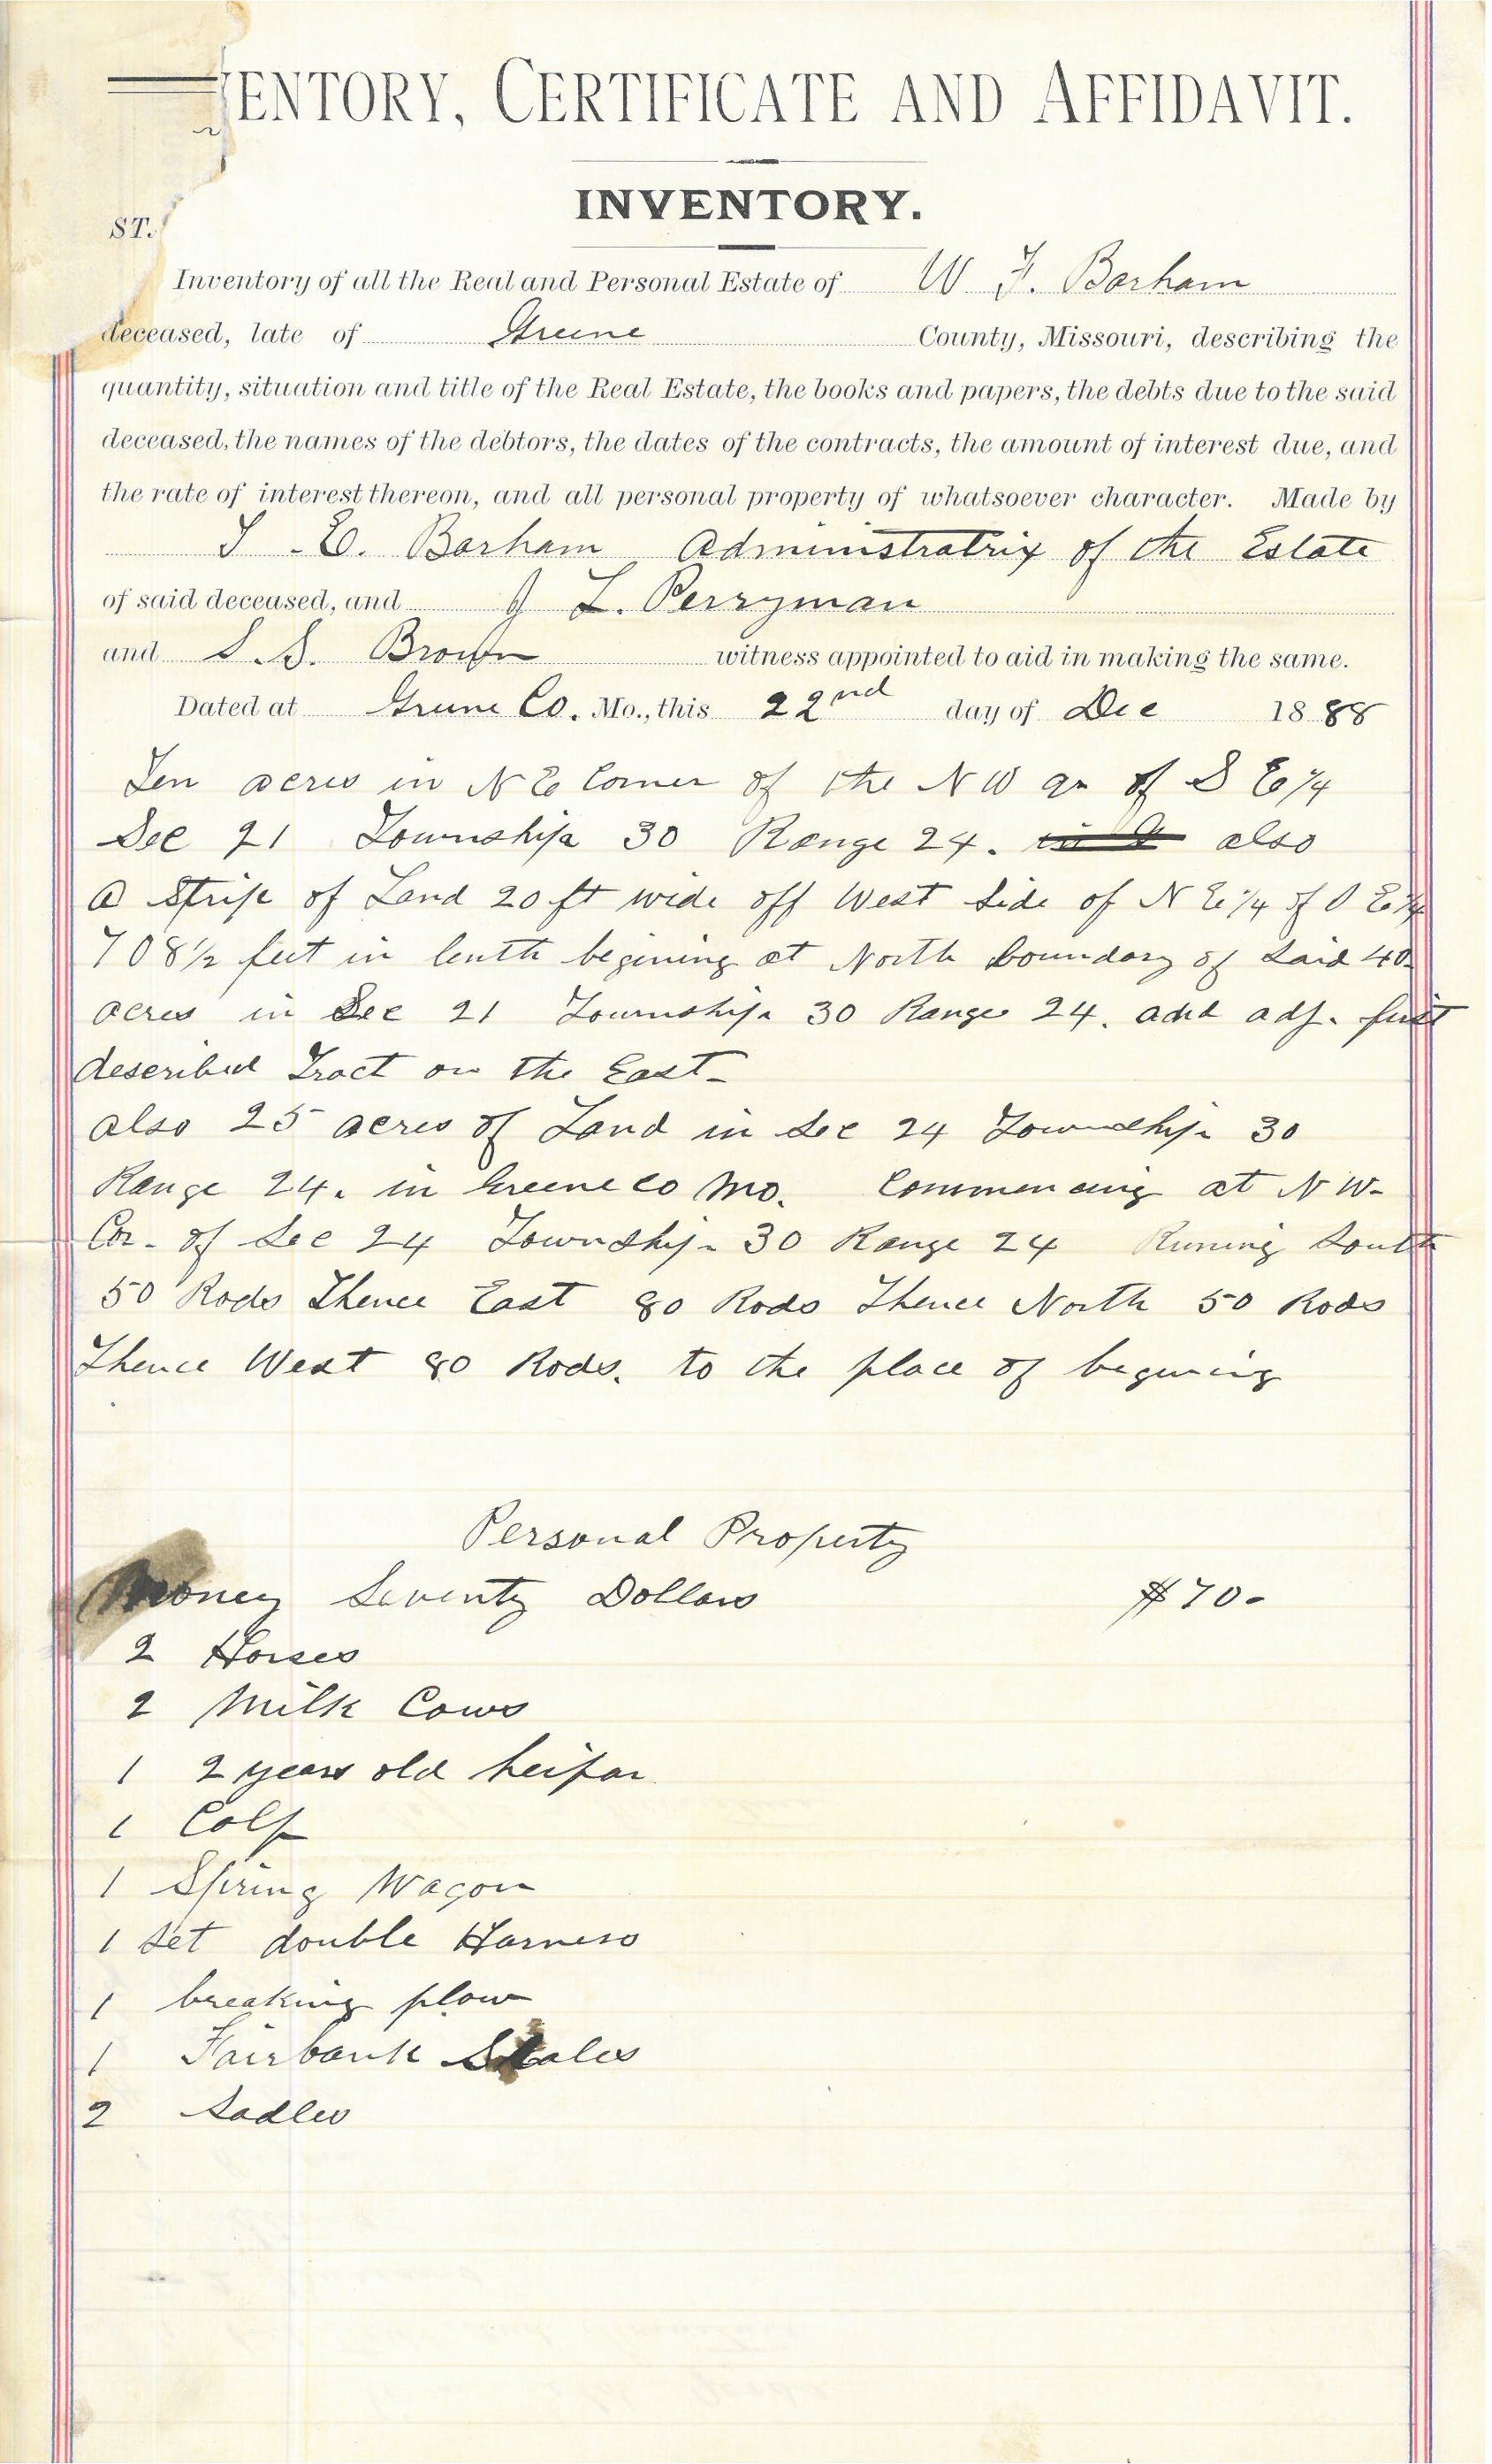 ENTORY, CERTIFICATE AND AFFIDAVIT.
INVENTORY.
ST.
Inventory of all the Real and Personal Estate of W F. Barham
deceased, late of Greene County, Missouri, describing the
quantity, situation and title of the Real Estate, the books and papers, the debts due to the said
deceased, the names of the debtors, the dates of the contracts, the amount of interest due, and
the rate of interest thereon, and all personal property of whatsoever character. Made by
E. Barham Administratrix of the Estate
of said deceased, and J L. Perryman
and S. S. Brown witness appointed to aid in making the same.
Dated at Greene Co. Mo., this 22nd day of Dec 1888
Ten acres in N E Corner of the N W qr of S E 1/4
Sec 21 Township 30 Range 24. also
a Strip of Land 20 ft wide off West Side of N E 1/4 of S E 1/4
708 1/2 feet in lenth begining at North boundary of Said 40
acres in Sec 21 Township 30 Range 24. and adj. first
described Tract on the East-
also 25 acres of Land in Sec 24 Township 30
Range 24. in Greene co Mo. Commencing at N W-
Cor. of Sec 24 Township 30 Range 24 Runing South
50 Rods Thence East 80 Rods Thence North 50 Rods
Thence West 80 Rods. to the place of begining
Personal Property
Money Seventy Dollars $70-
2 Horses
2 Milk Cows
1 2 years old heifar
1 Calf
1 Spring Wagon
1 set double Harness
1 breaking plow
1 Fairbank Scales
2 Sadles